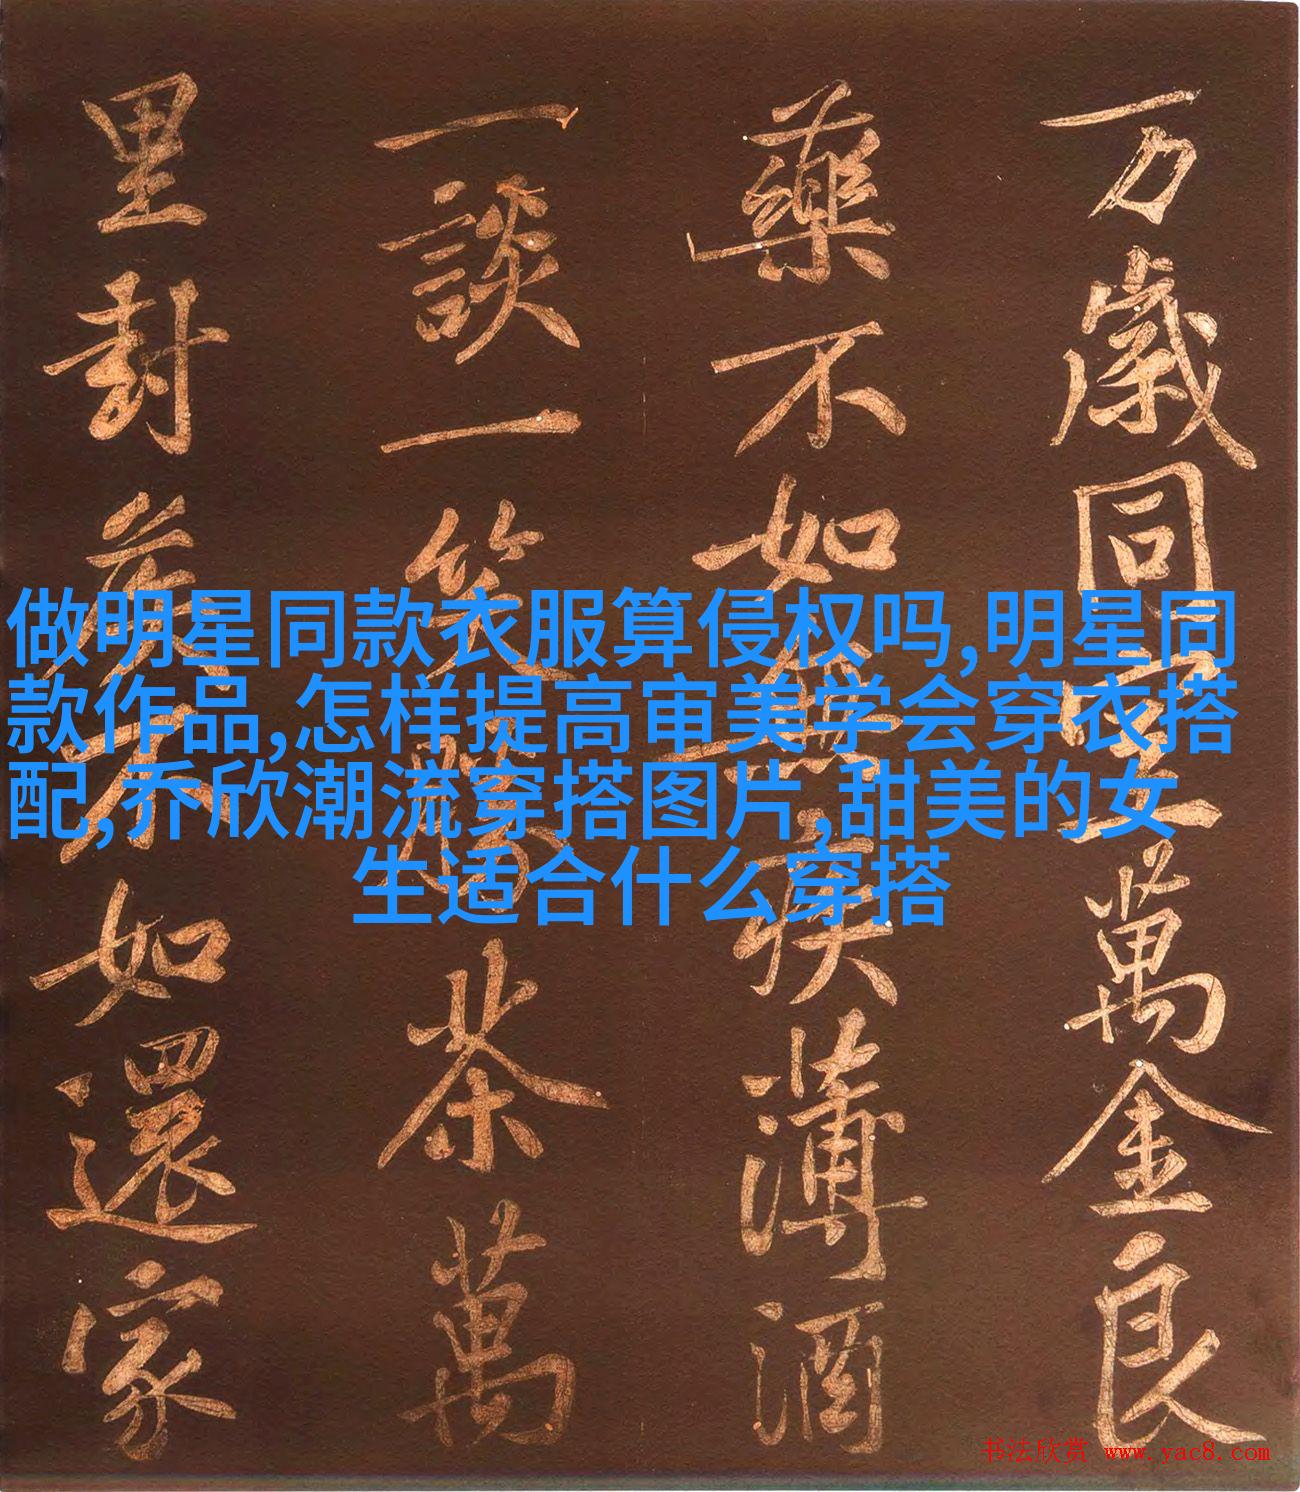 万歲同堂萬金良
藥不如無疾薄酒
一談一笑勝茶萬
里封侯不如還家
做明星同款衣服算侵权吗,明星同
款作品,怎样提高审美学会穿衣搭
配,乔欣潮流穿搭图片,甜美的女
生适合什么穿搭
书法欣赏 www.yac8.com